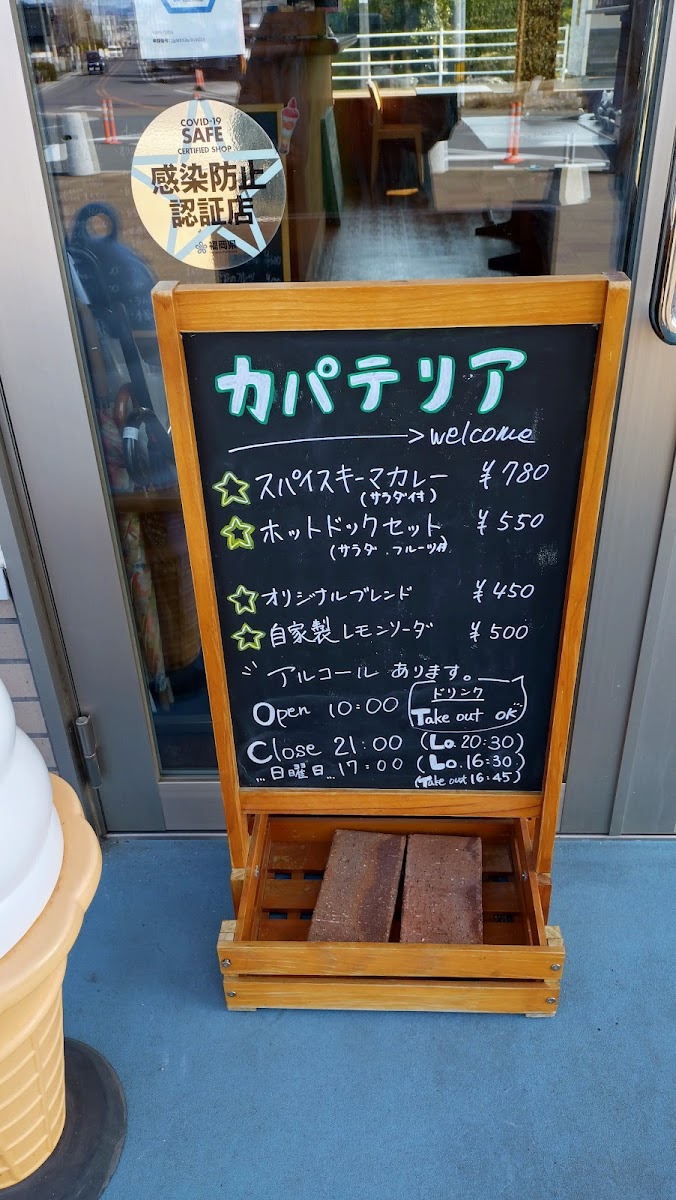 COVID-19
SAFE
CERTIFIED SHOP
感染防止
認証店
福岡県
カパテリア
welcome
スパイスキーマカレー ¥780
(サラダ付)
ホットドックセット ¥550
(サラダ.フルーツ付)
オリジナルブレンド ¥450
自家製レモンソーダ ¥500
アルコール あります。
ドリンク
Open 10:00 Take out OK
Close 21:00 (Lo.20:30)
…日曜日…17:00 (Lo.16:30)
(Take out 16:45)